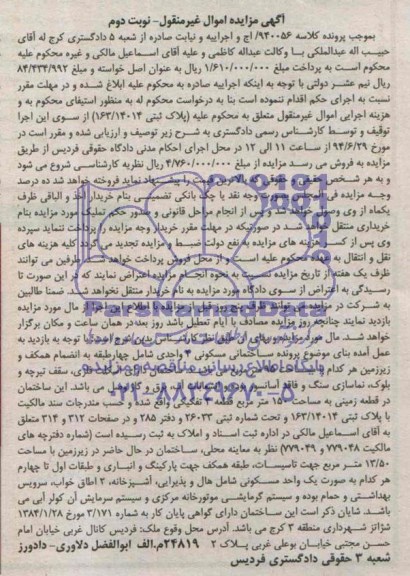 آگهی مزایده اموال غیرمنقول- نوبت دوم
بموجب پرونده کلاسه ۹۴۰۰۵۶/ اج و اجراییه و نیابت صادره از شعبه ۵ دادگستری کرج له آقای
حبیب اله عبدالملکی با وکالت عبداله کاظمی و علیه آقای اسماعیل مالکی و غیره محکوم علیه
محکوم است به پرداخت مبلغ ۱/۶۱۰/۰۰۰/۰۰۰ ریال به عنوان اصل خواسته و مبلغ ۸۴/۴۳۴/۹۹۲
ریال نیم عشر دولتی با توجه به اینکه اجراییه صادره به محکوم علیه ابلاغ شده و در مهلت مقرر
نسبت به اجرای حکم اقدام ننموده است بنا به درخواست محکوم له به منظور استیفای محکوم به و
هزینه اجرایی اموال غیرمنقول متعلق به محکوم علیه (پلاک ثبتی ۱۶۳/۱۴۰۱۴) از سوی این اجرا
توقیف و توسط کارشناس رسمی دادگستری به شرح زیر توصیف و ارزیابی شده و مقرر است در
۹۴/۶/۲۹ مورخ از ساعت ۱۱ الی ۱۲ در محل اجرای احکام مدنی دادگاه حقوقی فردیس از طریق
مزایده به فروش می رسد مزایده از مبلغ ۴/۷۶۰/۰۰۰/۰۰۰ ریال نظریه کارشناسی شروع می شود
و به هر شخص حقیقی و حقوقی که بالاترین قیمت را پیشنهاد نماید فروخته خواهد شد ده درصد
وجه مزایده فی المجلس وجه نقد یا چک بانکی تضمینی بنام خریدار اخذ و الباقی ظرف
یکماه از وی وصول خواهد شد و پس از انجام مراحل قانونی و صدور حکم تملیک مورد مزایده بنام
خریداری منتقل خواهد شد در صورتیکه در مهلت مقرر خریدار وجه مزایده را پرداخت ننماید سپرده
وی پس از کسر هزینه های مزایده به نفع دولت ضبط و مزایده تجدید می گردد کلیه هزینه های
نقل و انتقال به عهده محکوم علیه است و از محل فروش پرداخت خواهد شد طرفین می توانند
ظرف یک هفته از تاریخ مزایده نسبت به نحوه انجام مزایده اعتراض نمایند که در این صورت تا
رسیدگی به اعتراض از سوی دادگاه مورد مزایده به نام خریدار منتقل نخواهد شد. ضمنا طالبین
به شرکت در مزایده می توانند ظرف پنج روز قبل از مزایده با اطلاع این اجرا از مال مورد مزایده
بازدید نمایند چنانچه روز مزایده مصادف با ایام تعطیل باشد روز بعد در همان ساعت و مکان برگزار
خواهد شد. مال مورد مزایده و بهای آن طبق نظر کارشناس بدین شرح است: با توجه به بازدید به
عمل آمده بنای موضوع پرونده ساختمانی مسکونی ۴ واحدی شامل چهارطبقه به انضمام همکف و
بلوک، نماسازی سنگ و فاقد آسانسور
در قطعه زمینی به مساحت ۱۵۰ متر مربع قطعه تفکیکی واقع شده و حسب مندرجات سند مالکیت
با پلاک ثبتی ۱۶۳/۱۴۰۱۴ و تحت شماره ثبتی ۲۶۰۳۳ و دفتر ۲۸۵ و در صفحات ۳۱۲ و ۳۱۴ متعلق
به آقای اسماعیل مالکی در اداره ثبت اسناد و املاک به ثبت رسیده است (شماره دفترچه های
مالکیت ۷۷۹۰۴۸ و ۷۷۹۰۴۹) نظر به معاینه محلی، ساختمان در حال حاضر در زیرزمین با مساحت
۱۳/۵۰ متر مربع جهت تاسیسات، طبقه همکف جهت پارکینگ و انباری و طبقات اول تا چهارم
هر کدام به صورت یک واحد مسکونی شامل هال و پذیرایی، آشپزخانه، ۲ اطاق خواب، سرویس
بهداشتی و حمام بوده و سیستم گرمایشی موتورخانه مرکزی و سیستم سرمایش آن کولر آبی می
باشد. شایان ذکر است این ساختمان دارای گواهی پایان کار به شماره ۳/۱۷۱ مورخ ۱۳۸۴/۱/۲۸
شژانز شهرداری منطقه ۳ کرج می باشد. آدرس محل وقوع ملک: فردیس کانال غربی خیابان امام
حسن مجتبی خیابان بوعلی غربی پلاک ۲ ۲۴۸۱۹/م.الف ابوالفضل دلاوری- دادورز
شعبه ۳ حقوقی دادگستری فردیس
ParsNamadData
پایگاه اطلاع رسانی مناقصه و مزایده
۰۲۱-۸۸۳۴۹۶۷۰-۵